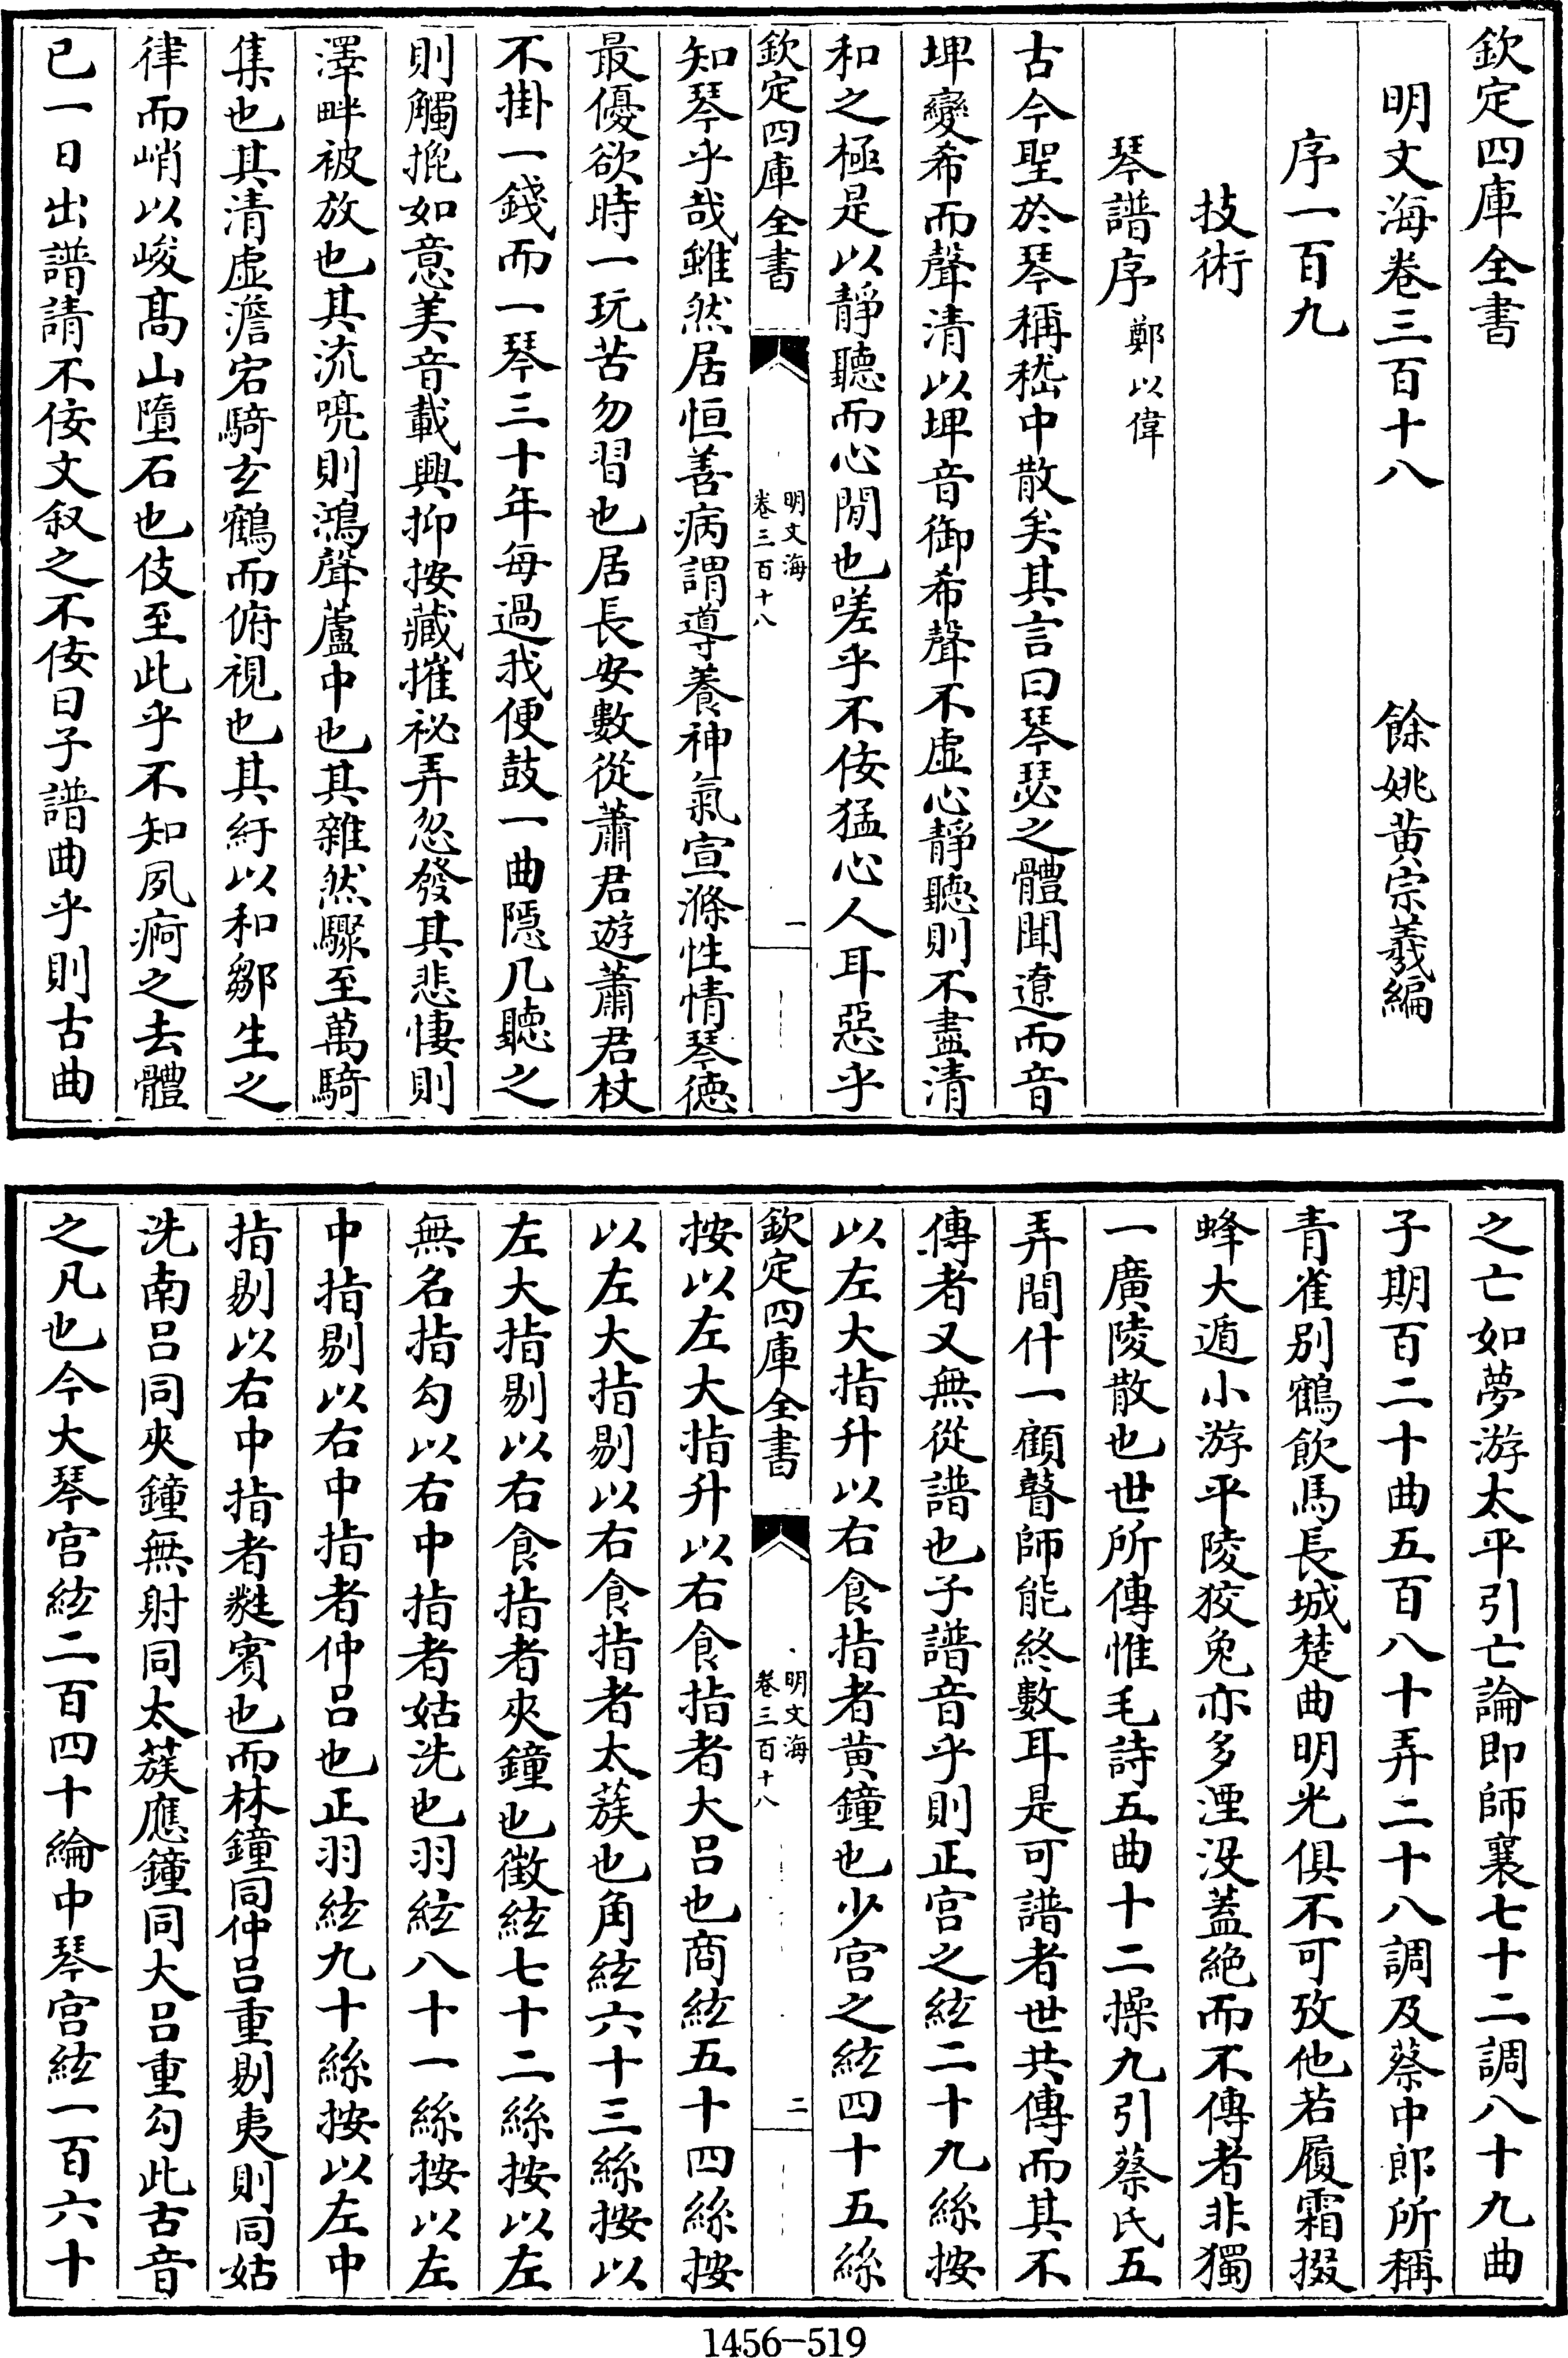 欽定四庫全書
明文海卷三百十八
餘姚黄宗羲編
序一百九
技術
琴譜序鄭以偉
古今聖於琴稱嵇中散矣其言曰琴瑟之體聞遼而音
埤變希而聲清以埤音御希聲不虚心靜聽則不盡清
和之極是以靜聽而心閒也嗟乎不佞猛心人耳惡乎
欽定四庫全書
明文海
卷三百十八
一
知琴乎哉雖然居恒善病謂導養神氣宣滌性情琴徳
最優欲時一玩苦勿習也居長安數從蕭君遊蕭君杖
不掛一錢而一琴三十年每過我便鼓一曲隱几聽之
則觸㧓如意美音載興抑按藏摧祕弄忽發其悲悽則
澤畔被放也其流喨則鴻聲蘆中也其雜然驟至萬騎
集也其清虚澹宕騎玄鶴而俯視也其紆以和鄒生之
律而峭以峻髙山墮石也伎至此乎不知夙痾之去體
已一日出譜請不佞文叙之不佞曰子譜曲乎則古曲
之亡如夢游太平引亡論即師襄七十二調八十九曲
子期百二十曲五百八十弄二十八調及蔡中郎所稱
青雀别鶴飲馬長城楚曲明光俱不可攷他若履霜掇
蜂大遁小游平陵狡兔亦多湮沒蓋絶而不傳者非獨
一廣陵散也世所傳惟毛詩五曲十二操九引蔡氏五
弄間什一顧瞽師能終數耳是可譜者世共傳而其不
傳者又無從譜也子譜音乎則正宫之絃二十九絲按
以左大指升以右食指者黄鐘也少宫之絃四十五絲
欽定四庫全書
明文海
卷三百十八
二
按以左大指升以右食指者大呂也商絃五十四絲按
以左大指剔以右食指者太蔟也角絃六十三絲按以
左大指剔以右食指者夾鐘也徴絃七十二絲按以左
無名指勾以右中指者姑洗也羽絃八十一絲按以左
中指剔以右中指者仲呂也正羽絃九十絲按以左中
指剔以右中指者蕤賓也而林鐘同仲呂重剔夷則同姑
洗南呂同夾鐘無射同太蔟應鐘同大呂重勾此古音
之凡也今大琴宫絃二百四十綸中琴宫絃一百六十
1456-519